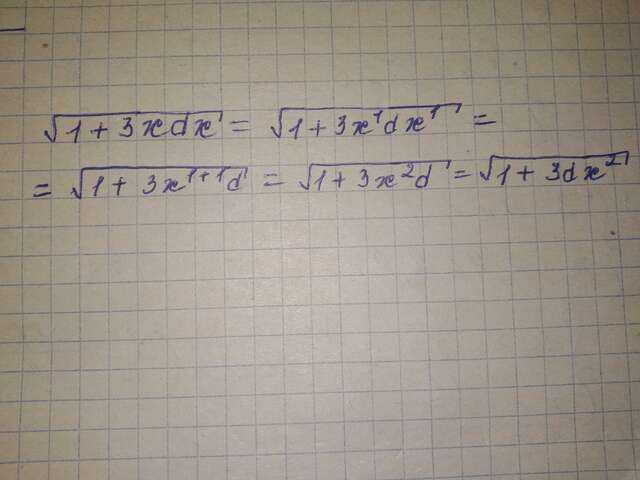 √1 + 3xdx = √1 + 3x¹dx¹ =
= √1 + 3x¹⁺¹d = √1 + 3x²d = √1 + 3dx²